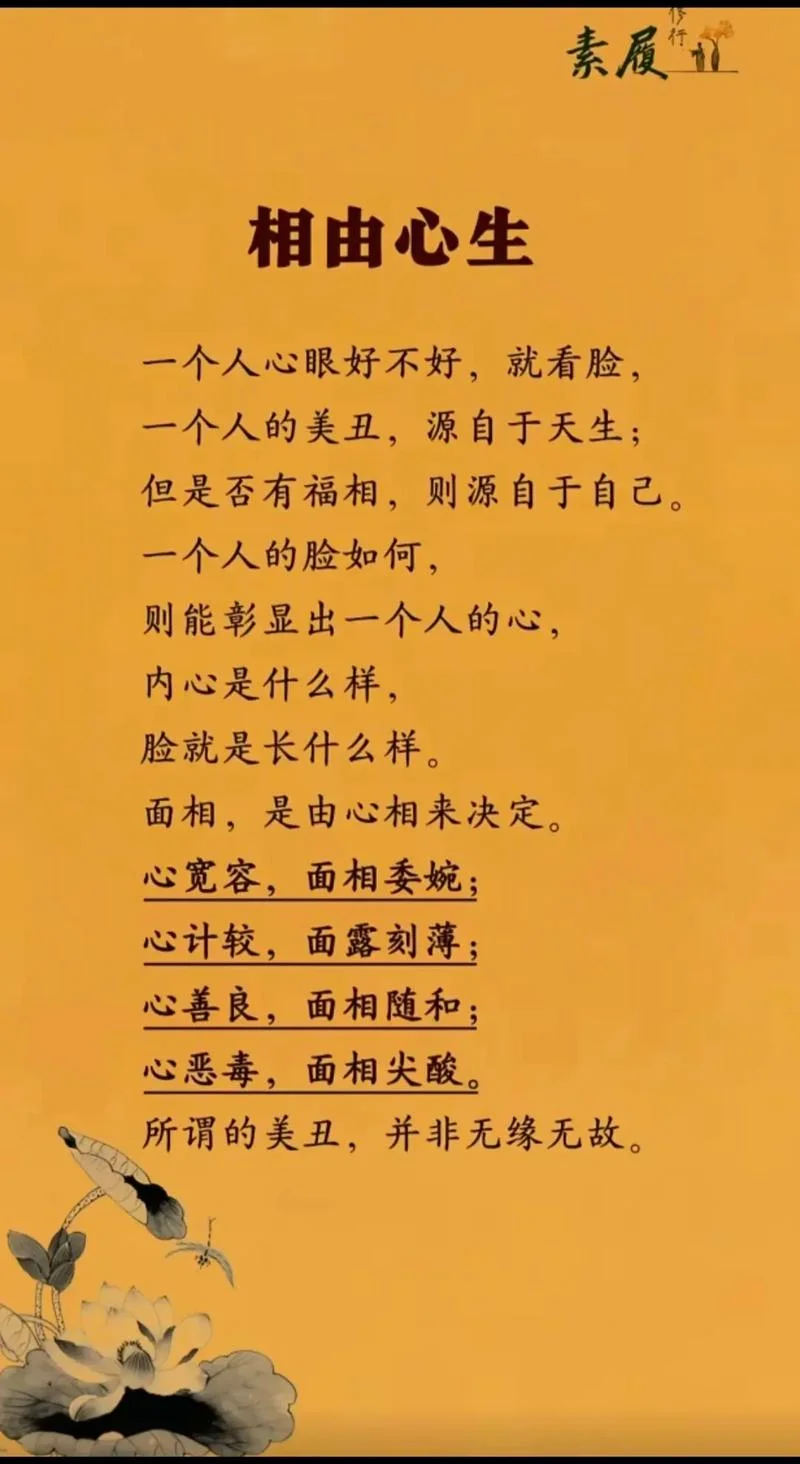 素履
修行
相由心生
一个人心眼好不好，就看脸，
一个人的美丑，源自于天生；
但是否有福相，则源自于自己。
一个人的脸如何，
则能彰显出一个人的心，
内心是什么样，
脸就是长什么样。
面相，是由心相来决定。
心宽容，面相委婉；
心计较，面露刻薄；
心善良，面相随和；
心恶毒，面相尖酸。
所谓的美丑，并非无缘无故。